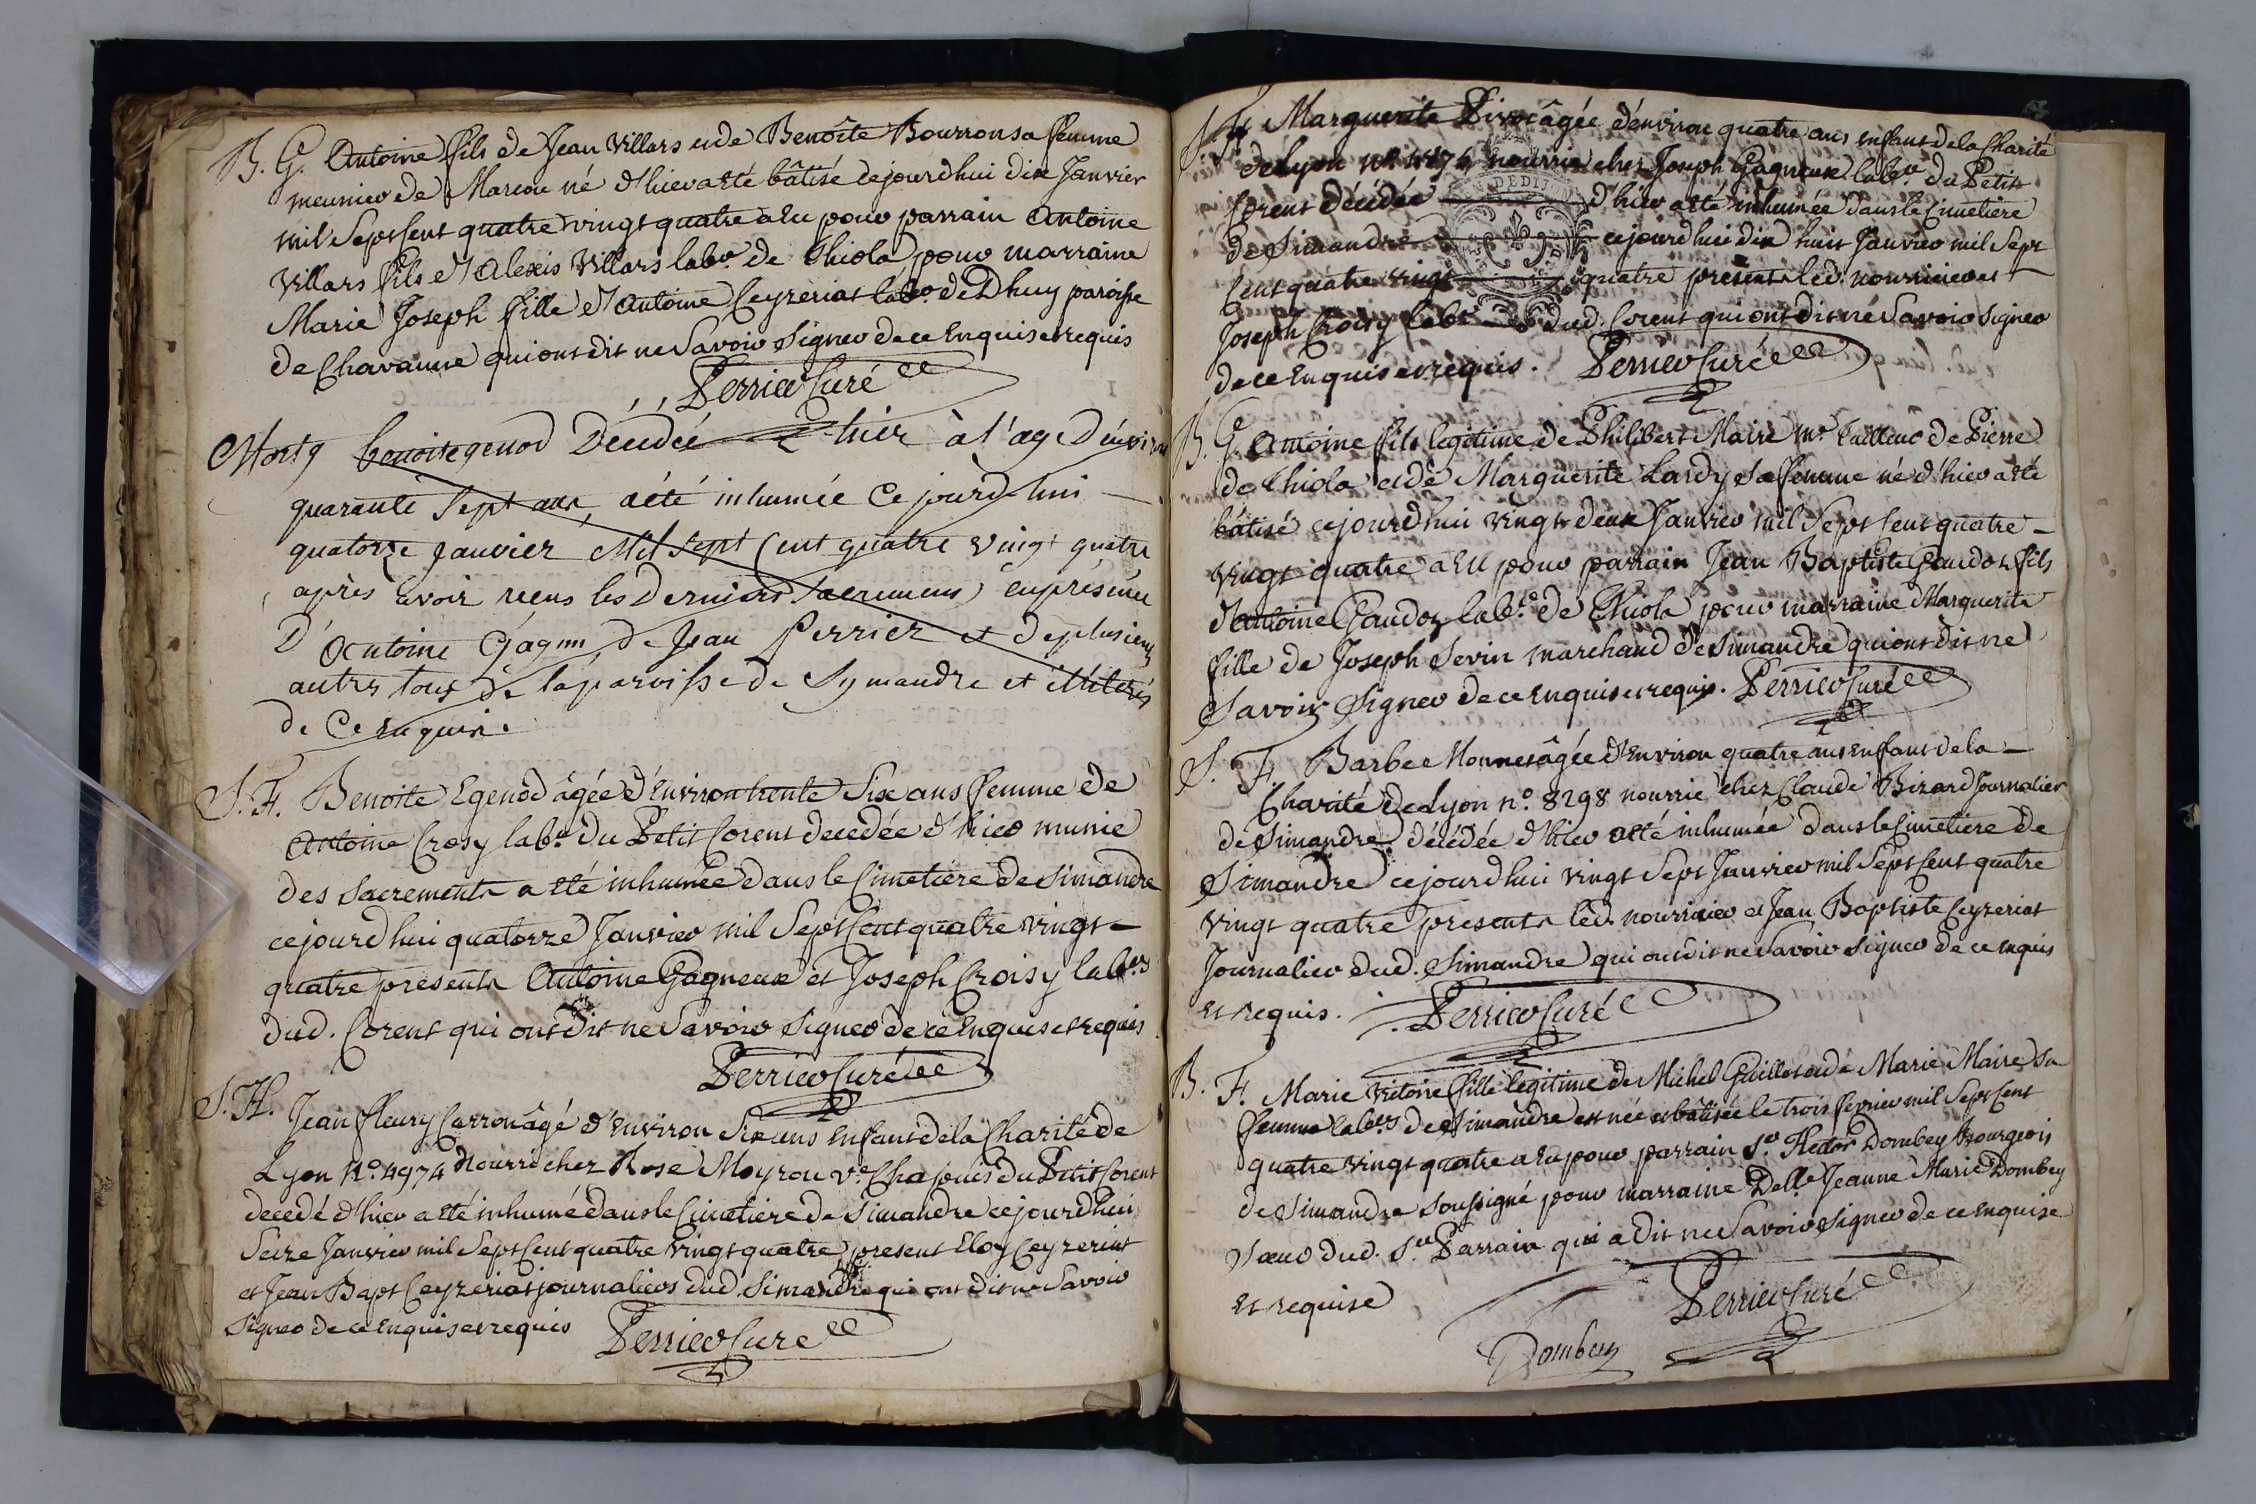 B. G. Antoine fils de Jean Villars et de Benoîte Bourron sa femme
meunier de Marcou né d'hier a eté bâtisé cejourdhui dix Janvier
mil Sept Cent quatre vingt quatre a Eu pour parrain Antoine
Villars fils d'Alexis Villars labr. de Thiola pour marraine
Marie Joseph fille d'Antoine Ceyzeriat labr. de Dhuy paroisse
de Chavanne qui ont dit ne Savoir Signer de ce Enquis et requis
Perrier Curé
Morts benoite genod Décédée hier à l'age d'environ
quarante Sept ans a été inhumée Ce jourd'hui
quatorze janvier Mil Sept Cent quatre vingt quatre
après avoir reçus les Derniers Sacremens en présence
D'Antoine Gagnu de Jean Perrier et de plusieurs
autres tous de la paroisse de Symandre et illiterés
de Ce Enquis.
S. F. Benoite Egenod âgée d'Environ trente Six ans femme de
Antoine Crosy labr. du Petit Corent decedée d'hier munie
des Sacrements a eté inhumée dans le Cimetiere de Simandre
cejourdhui quatorze Janvier mil Sept Cent quatre vingt
quatre presents Antoine Gagneux et Joseph Croisy labrs
dud. Corent qui ont dit ne Savoir Signer de ce Enquis et requis
Perrier Curé
S. H. Jean fleury Carron âgé d'Environ Six ans Enfant de la Charité de
Lyon N°. 4974 Nourri chez Rose Moyrou ve. Chapuis du Petit Corent
decedé d'hier a eté inhumé dans le Cimetiere de Simandre cejourdhui
Seize Janvier mil Sept Cent quatre Vingt quatre present Eloy Ceyzeriat
et Jean Bapt Ceyzeriat journaliers dud. Simandre qui ont dit ne Savoir
Signer de ce Enquis et requis Perrier Curé
S. F. Marguerite âgée d'environ quatre ans enfant de la Charité
de Lyon N°. nourrie chez Joseph Gagneux labr. du Petit
Corent décédée d'hier a eté inhumée dans le Cimetiere
de Simandre cejourdhui dix huit Janvier mil Sept
Cent quatre vingt quatre presents led. nourricier et
Joseph Croisy labr dud. Corent qui ont dit ne Savoir Signer
de ce Enquis et requis. Perrier Curé
B. G. Antoine fils legitime de Philibert Maire Mr. Tailleur de Pierre
de Thiola et de Marguerite Lardy sa femme né d'hier a eté
bâtisé cejourdhui vingt deux Janvier mil Sept Cent quatre
vingt quatre a Eu pour parrain Jean Baptiste Gaudoz fils
d'Antoine Gaudoz labr. de Thiola pour marraine Marguerite
fille de Joseph Sevin marchand de Simandre qui ont dit ne
Savoir Signer de ce Enquis et requis. Perrier Curé
S. F. Barbe Monnet âgée d'Environ quatre ans Enfant de la
Charité de Lyon n°. 8298 nourrie chez Claude Bizard Journalier
de Simandre décédée d'hier a eté inhumée dans le Cimetiere de
Simandre cejourdhui vingt Sept Janvier mil Sept Cent quatre
vingt quatre presents led. nourricier et Jean Baptiste Ceyzeriat
Journalier dud. Simandre qui ont dit ne Savoir Signer de ce enquis
et requis. Perrier Curé
B. F. Marie Victoire fille legitime de Michel Guillot et de Marie Maire sa
femme labrs de Simandre est née et bâtisée le trois fevrier mil Sept Cent
quatre vingt quatre a Eu pour parrain Sr. Hector Dombey Bourgeois
de Simandre Soussigné pour marraine Delle Jeanne Marie Dombey
Soeur dud. Sr. Parrain qui a dit ne Savoir Signer de ce Enquise
et requise Perrier Curé
Dombey